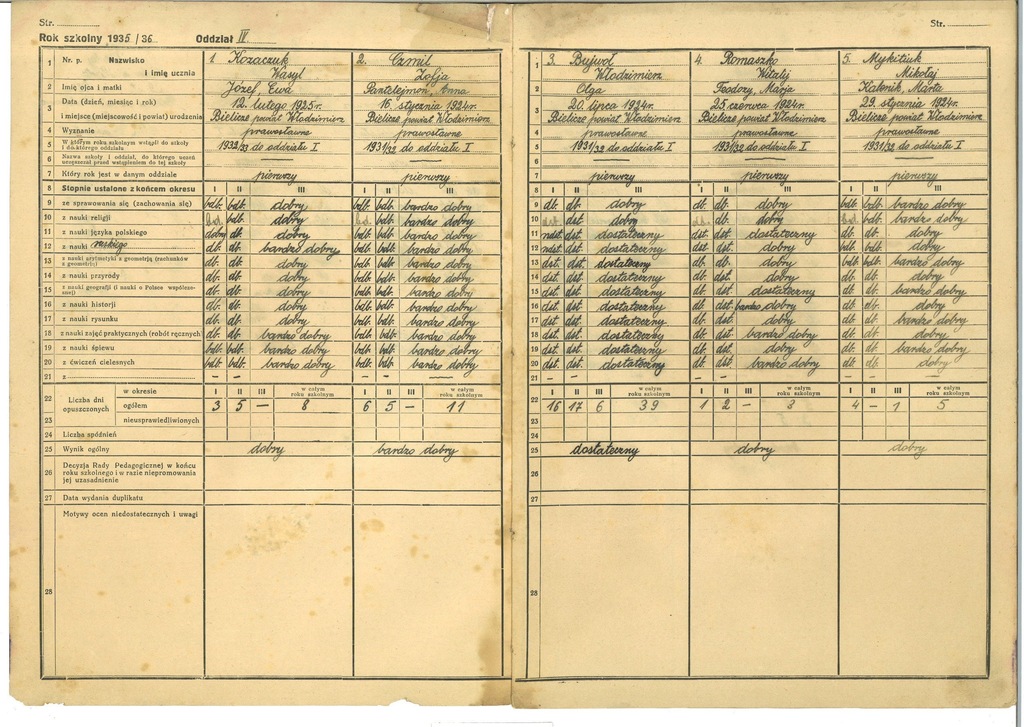 Str.
Rok szkolny 1935/36 Oddział IV
1 Nr. p. Nazwisko i imię ucznia
1. Kozaczuk Wasyl
2. Czmil Zofja
2 Imię ojca i matki
Józef, Ewa
Pantelejmon, Anna
3 Data (dzień, miesiąc i rok) i miejsce (miejscowość i powiat) urodzenia
12. lutego 1925r. Bielicze powiat Włodzimierz
16. stycznia 1924r. Bielicze, powiat Włodzimierz
4 Wyznanie
prawosławne
prawosławne
5 W którym roku szkolnym wstąpił do szkoły i do którego oddziału
1932/33 do oddziału I
1931/32 do oddziału I
6 Nazwa szkoły i oddział, do którego uczeń uczęszczał przed wstąpieniem do tej szkoły
— —
7 Który rok jest w danym oddziale
pierwszy
pierwszy
8 Stopnie ustalone z końcem okresu I II III I II III
9 ze sprawowania się (zachowania się) bdt. bdt. dobry bdt. bdt. bardzo dobry
10 z nauki religji bdt. dobry bdt. bardzo dobry
11 z nauki języka polskiego dobry dt. dobry bdt. bdt. bardzo dobry
12 z nauki ruskiego dt. dt. bardzo dobry bdt. bdt. bardzo dobry
13 z nauki arytmetyki z geometrją (rachunków z geometrją) dt. dt. dobry bdt. bdt. bardzo dobry
14 z nauki przyrody dt. dt. dobry bdt. bdt. bardzo dobry
15 z nauki geografji (i nauki o Polsce współczesnej) dt. dt. dobry bdt. bdt. bardzo dobry
16 z nauki historji dt. dt. dobry bdt. bdt. bardzo dobry
17 z nauki rysunku dt. dt. dobry bdt. bdt. bardzo dobry
18 z nauki zajęć praktycznych (robót ręcznych) dt. dt. bardzo dobry bdt. bdt. bardzo dobry
19 z nauki śpiewu bdt. bdt. bardzo dobry bdt. bdt. bardzo dobry
20 z ćwiczeń cielesnych bdt. bdt. bardzo dobry bdt. bdt. bardzo dobry
21 z — — — — —
22 Liczba dni opuszczonych w okresie I II III w całym roku szkolnym I II III w całym roku szkolnym
ogółem 3 5 — 8 6 5 — 11
23 nieusprawiedliwionych
24 Liczba spóźnień
25 Wynik ogólny dobry bardzo dobry
26 Decyzja Rady Pedagogicznej w końcu roku szkolnego i w razie niepromowania jej uzasadnienie
27 Data wydania duplikatu
28 Motywy ocen niedostatecznych i uwagi
Str.
1 3. Bujwoł Włodzimierz
4. Romaszko Witalij
5. Mykitiuk Mikołaj
2 Olga
Teodozy, Marja
Kalenik, Marta
3 20. lipca 1924r. Bielicze powiat Włodzimierz
25. czerwca 1924r. Bielicze, powiat Włodzimierz
29. stycznia 1924r. Bielicze powiat Włodzimierz
4 prawosławne
prawosławne
prawosławne
5 1931/32 do oddziału I
1931/32 do oddziału I
1931/32 do oddziału I
6 — — —
7 pierwszy
pierwszy
pierwszy
8 I II III I II III I II III
9 dt. dt. dobry dt. dt. dobry bdt. bdt. bardzo dobry
10 dst. dobry dt. dobry bdt. bardzo dobry
11 ndst. dst. dostateczny dst. dst. dostateczny dt. dt. dobry
12 ndst. dst. dostateczny dt. dst. dobry bdt. bdt. dobry
13 dst. dst. dostateczny dt. dt. dobry bdt. bdt. bardzo dobry
14 dst. dst. dostateczny dt. dt. dobry dt. dt. dobry
15 dst. dst. dostateczny dt. dst. dostateczny dt. dt. bardzo dobry
16 dst. dst. dostateczny dt. dst. bardzo dobry dt. dt. dobry
17 dst. dst. dostateczny dt. dst. dobry dt. dt. bardzo dobry
18 dst. dst. dostateczny dt. dt. bardzo dobry dt. dt. dobry
19 dst. dst. dostateczny dt. dt. dobry dt. dt. bardzo dobry
20 dst. dst. dostateczny dt. dt. bardzo dobry dt. dt. dobry
21 — — — — — —
22 I II III w całym roku szkolnym I II III w całym roku szkolnym I II III w całym roku szkolnym
16 17 6 39 1 2 — 3 4 — 1 5
23
24
25 dostateczny dobry dobry
26
27
28